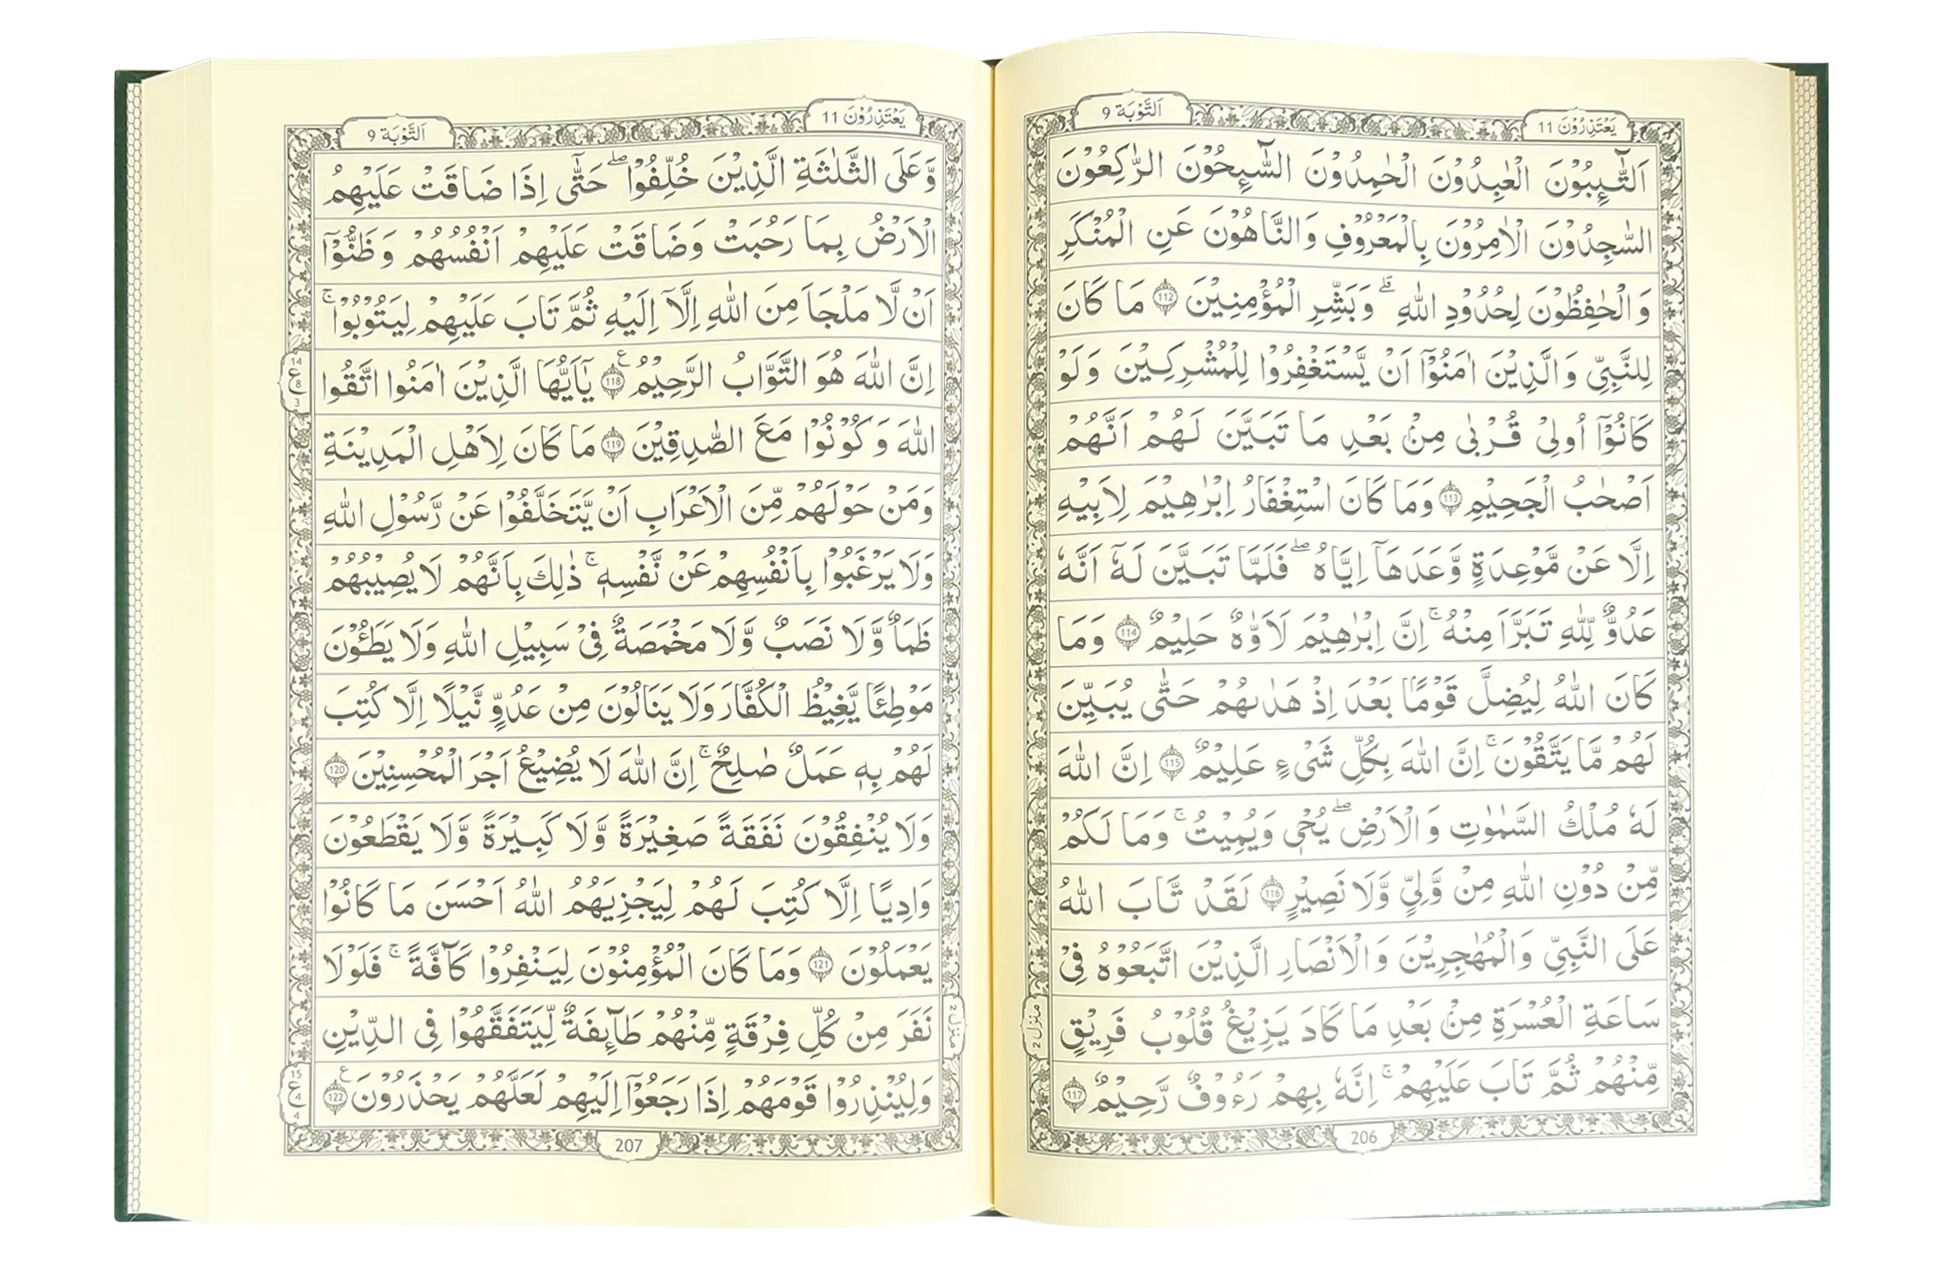 اَلتَّوْبَة 9
يَعْتَذِرُوْنَ 11
اَلتَّآئِبُوْنَ الْعٰبِدُوْنَ الْحٰمِدُوْنَ السَّآئِحُوْنَ الرّٰكِعُوْنَ
السّٰجِدُوْنَ الْاٰمِرُوْنَ بِالْمَعْرُوْفِ وَالنَّاهُوْنَ عَنِ الْمُنْكَرِ
وَالْحٰفِظُوْنَ لِحُدُوْدِ اللّٰهِ ۗ وَبَشِّرِ الْمُؤْمِنِيْنَ 112 مَا كَانَ
لِلنَّبِيِّ وَالَّذِيْنَ اٰمَنُوْۤا اَنْ يَّسْتَغْفِرُوْا لِلْمُشْرِكِيْنَ وَلَوْ
كَانُوْۤا اُولِيْ قُرْبٰى مِنْۢ بَعْدِ مَا تَبَيَّنَ لَهُمْ اَنَّهُمْ
اَصْحٰبُ الْجَحِيْمِ 113 وَمَا كَانَ اسْتِغْفَارُ اِبْرٰهِيْمَ لِاَبِيْهِ
اِلَّا عَنْ مَّوْعِدَةٍ وَّعَدَهَاۤ اِيَّاهُ ۖ فَلَمَّا تَبَيَّنَ لَهٗۤ اَنَّهٗ
عَدُوٌّ لِّلّٰهِ تَبَرَّاَ مِنْهُ ۚ اِنَّ اِبْرٰهِيْمَ لَاَوَّاهٌ حَلِيْمٌ 114 وَمَا
كَانَ اللّٰهُ لِيُضِلَّ قَوْمًاۢ بَعْدَ اِذْ هَدٰىهُمْ حَتّٰى يُبَيِّنَ
لَهُمْ مَّا يَتَّقُوْنَ ۚ اِنَّ اللّٰهَ بِكُلِّ شَيْءٍ عَلِيْمٌ 115 اِنَّ اللّٰهَ
لَهٗ مُلْكُ السَّمٰوٰتِ وَالْاَرْضِ ۖ يُحْيٖ وَيُمِيْتُ ۚ وَمَا لَكُمْ
مِّنْ دُوْنِ اللّٰهِ مِنْ وَّلِيٍّ وَّلَا نَصِيْرٍ 116 لَقَدْ تَّابَ اللّٰهُ
عَلَى النَّبِيِّ وَالْمُهٰجِرِيْنَ وَالْاَنْصَارِ الَّذِيْنَ اتَّبَعُوْهُ فِيْ
سَاعَةِ الْعُسْرَةِ مِنْۢ بَعْدِ مَا كَادَ يَزِيْغُ قُلُوْبُ فَرِيْقٍ
مِّنْهُمْ ثُمَّ تَابَ عَلَيْهِمْ ۚ اِنَّهٗ بِهِمْ رَءُوْفٌ رَّحِيْمٌ 117
منزل 2
206
اَلتَّوْبَة 9
يَعْتَذِرُوْنَ 11
وَّعَلَى الثَّلٰثَةِ الَّذِيْنَ خُلِّفُوْا ۖ حَتّٰۤى اِذَا ضَاقَتْ عَلَيْهِمُ
الْاَرْضُ بِمَا رَحُبَتْ وَضَاقَتْ عَلَيْهِمْ اَنْفُسُهُمْ وَظَنُّوْۤا
اَنْ لَّا مَلْجَاَ مِنَ اللّٰهِ اِلَّاۤ اِلَيْهِ ثُمَّ تَابَ عَلَيْهِمْ لِيَتُوْبُوْا ۚ
اِنَّ اللّٰهَ هُوَ التَّوَّابُ الرَّحِيْمُ 118 يٰۤاَيُّهَا الَّذِيْنَ اٰمَنُوا اتَّقُوا
اللّٰهَ وَكُوْنُوْا مَعَ الصّٰدِقِيْنَ 119 مَا كَانَ لِاَهْلِ الْمَدِيْنَةِ
وَمَنْ حَوْلَهُمْ مِّنَ الْاَعْرَابِ اَنْ يَّتَخَلَّفُوْا عَنْ رَّسُوْلِ اللّٰهِ
وَلَا يَرْغَبُوْا بِاَنْفُسِهِمْ عَنْ نَّفْسِهٖ ۚ ذٰلِكَ بِاَنَّهُمْ لَا يُصِيْبُهُمْ
ظَمَاٌ وَّلَا نَصَبٌ وَّلَا مَخْمَصَةٌ فِيْ سَبِيْلِ اللّٰهِ وَلَا يَطَـُٔوْنَ
مَوْطِئًا يَّغِيْظُ الْكُفَّارَ وَلَا يَنَالُوْنَ مِنْ عَدُوٍّ نَّيْلًا اِلَّا كُتِبَ
لَهُمْ بِهٖ عَمَلٌ صَالِحٌ ۚ اِنَّ اللّٰهَ لَا يُضِيْعُ اَجْرَ الْمُحْسِنِيْنَ 120
وَلَا يُنْفِقُوْنَ نَفَقَةً صَغِيْرَةً وَّلَا كَبِيْرَةً وَّلَا يَقْطَعُوْنَ
وَادِيًا اِلَّا كُتِبَ لَهُمْ لِيَجْزِيَهُمُ اللّٰهُ اَحْسَنَ مَا كَانُوْا
يَعْمَلُوْنَ 121 وَمَا كَانَ الْمُؤْمِنُوْنَ لِيَنْفِرُوْا كَآفَّةً ۚ فَلَوْلَا
نَفَرَ مِنْ كُلِّ فِرْقَةٍ مِّنْهُمْ طَآئِفَةٌ لِّيَتَفَقَّهُوْا فِى الدِّيْنِ
وَلِيُنْذِرُوْا قَوْمَهُمْ اِذَا رَجَعُوْۤا اِلَيْهِمْ لَعَلَّهُمْ يَحْذَرُوْنَ 122
منزل 2
207